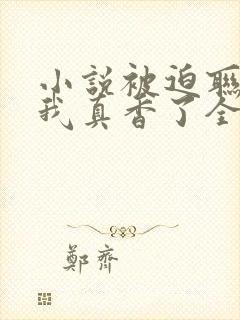 小說被迫聯
我真香了全
鄭齊